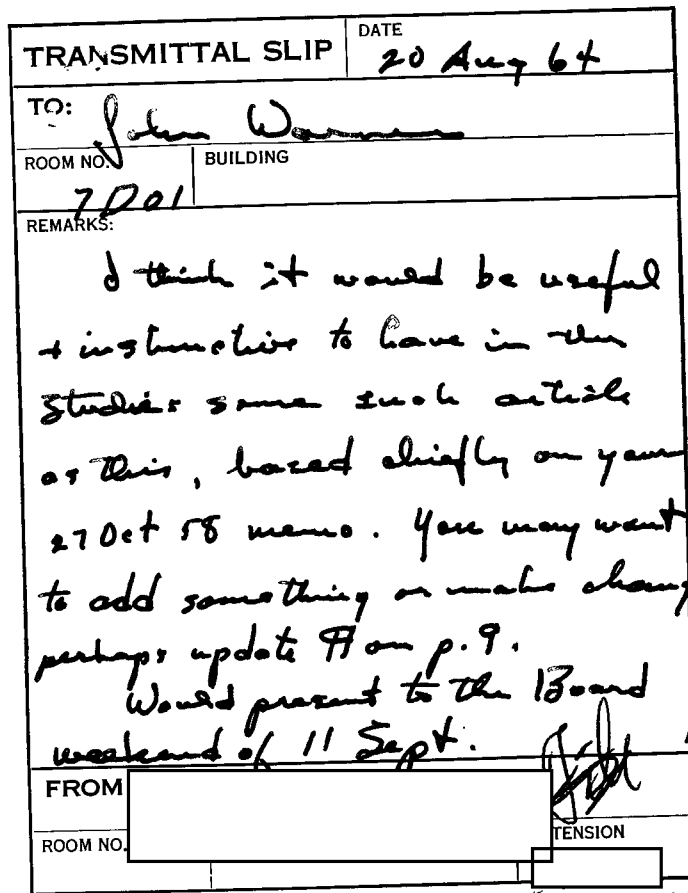 TRANSMITTAL SLIP
DATE
20 Aug 64
TO:
John Warner
ROOM NO.
7D01
BUILDING
REMARKS:
I think it would be useful
+ instructive to have in the
Studies some such article
as this, based chiefly on your
27 Oct 58 memo. You may want
to add something or make chang
perhaps update ¶ on p. 9.
Would present to the Board
weekend of 11 Sept.
FROM
ROOM NO.
TENSION